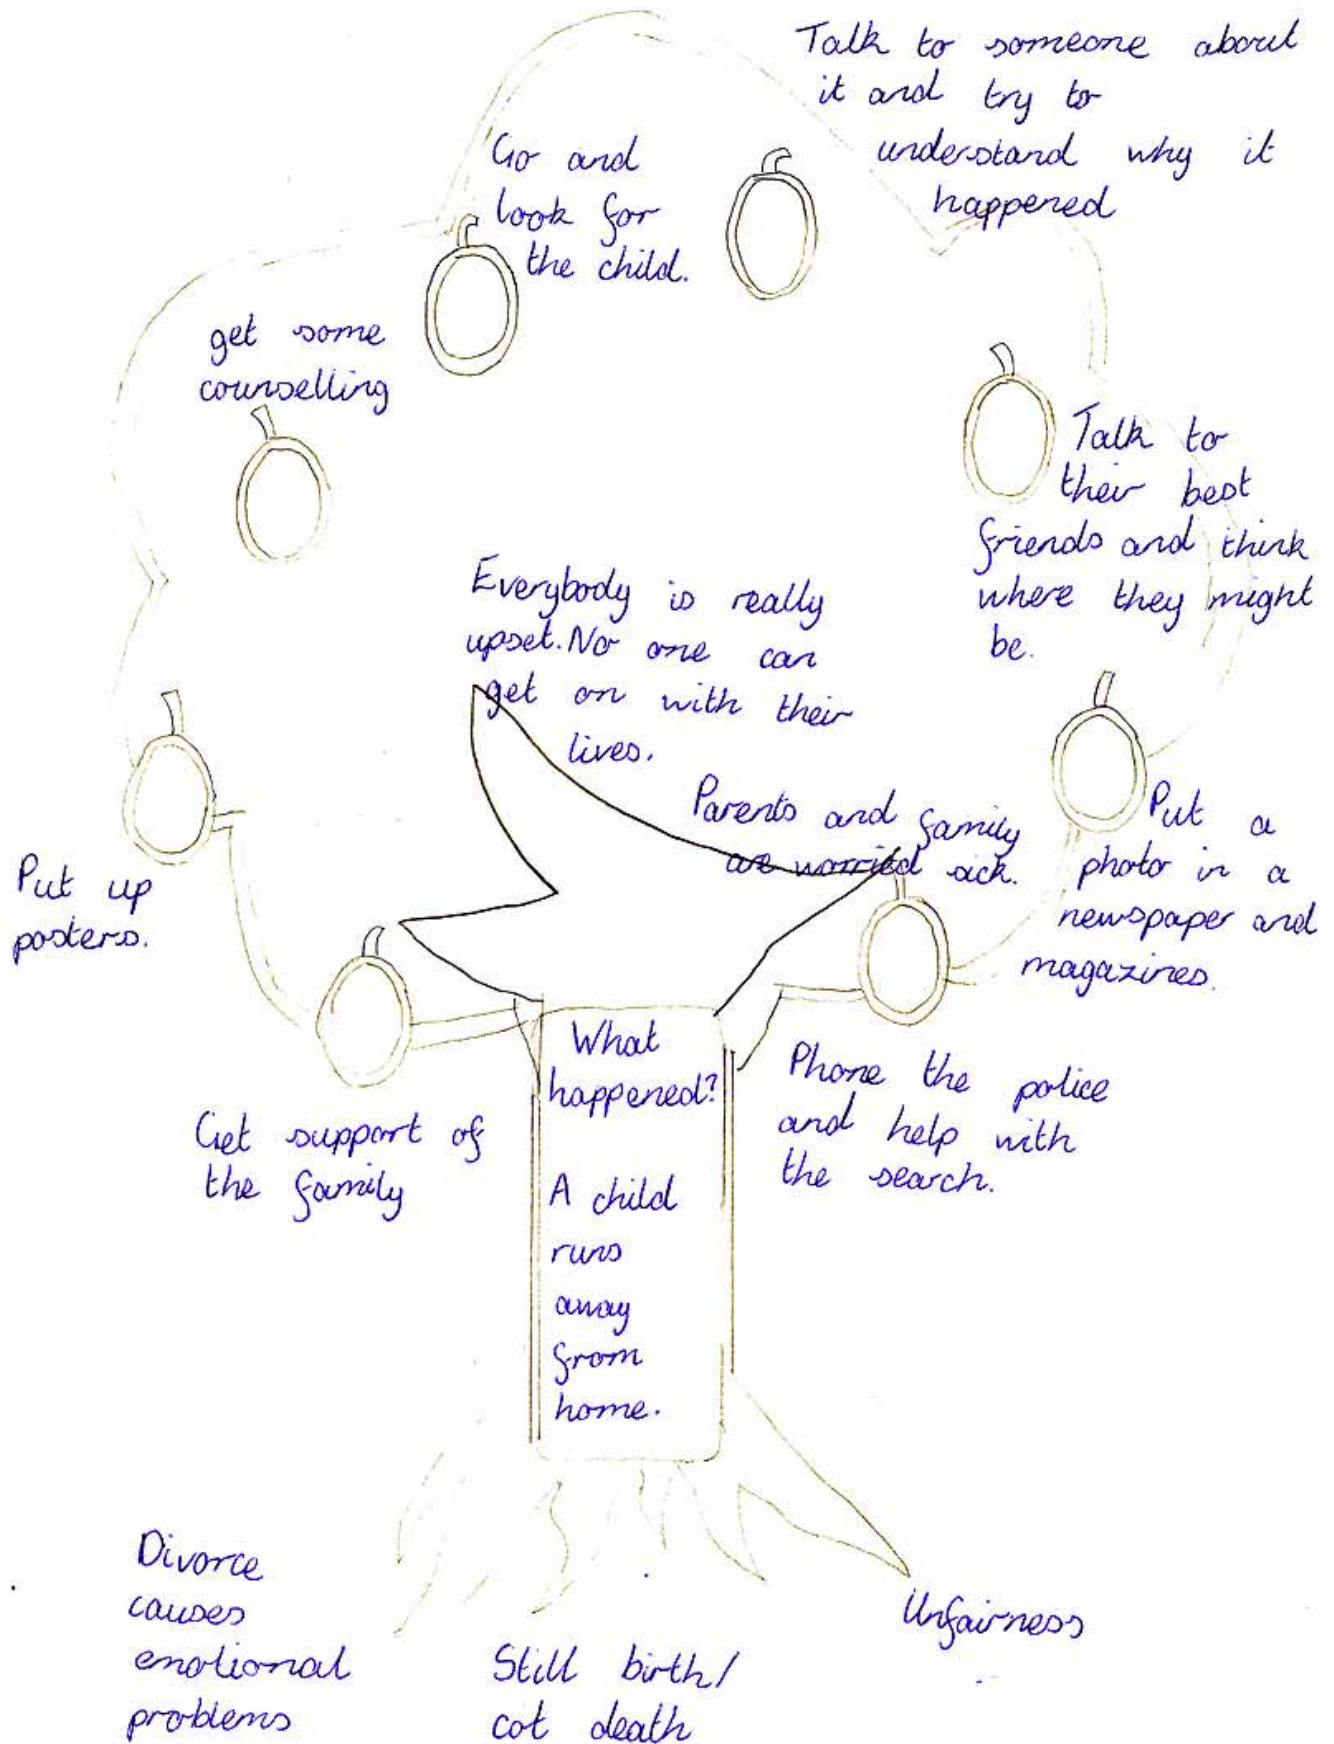 Talk to someone about
it and try to
understand why it
happened
Go and
look for
the child.
get some
counselling
Talk to
their best
friends and think
where they might
be.
Everybody is really
upset. No one can
get on with their
lives.
Parents and family
are worried sick.
Put a
photo in a
newspaper and
magazines.
Put up
posters.
What
happened?
A child
runs
away
from
home.
Phone the police
and help with
the search.
Get support of
the family
Divorce
causes
emotional
problems
Still birth/
cot death
Unfairness